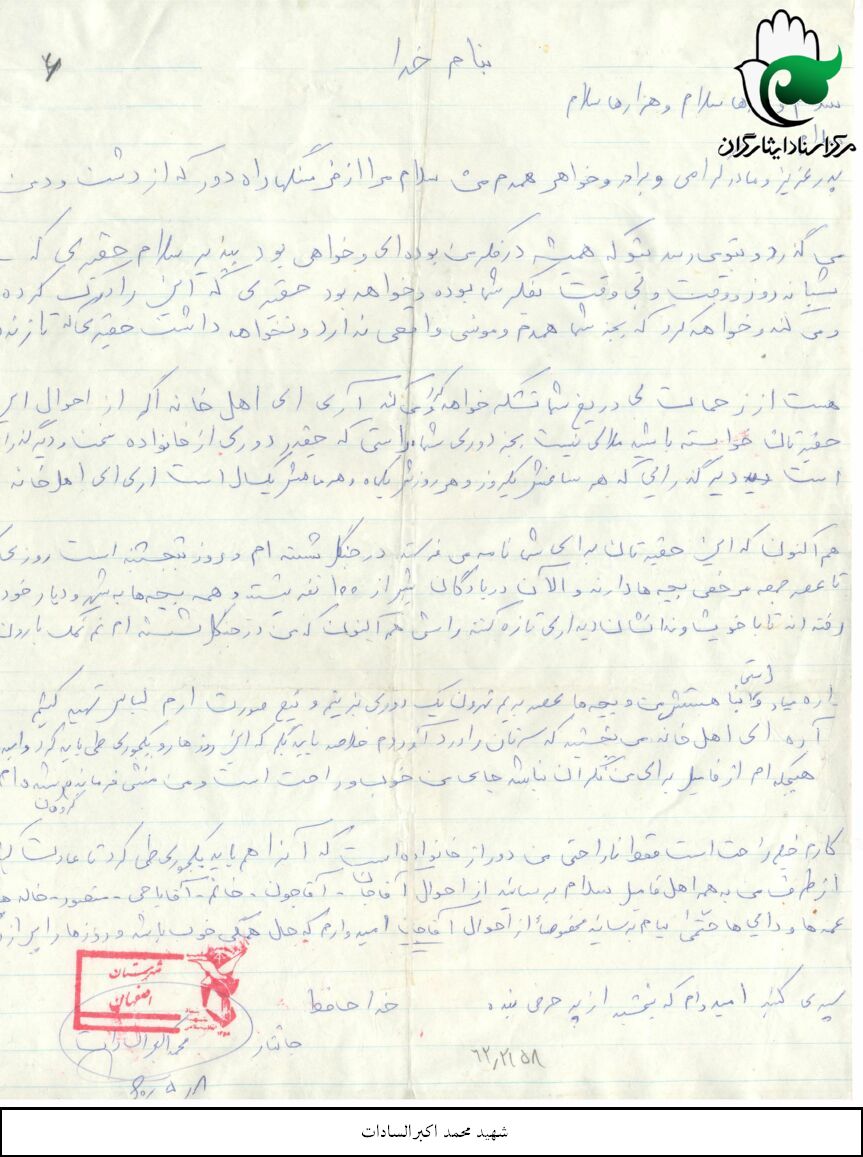 بنام خدا
سلام و ها سلام و هزارها سلام
مرکز اسناد ایثارگران
پدر عزیز و مادر گرامی و برادر و خواهر همدم من سلام مرا از فرسنگها راه دور که از دشت و دمن
می گذرد و بتو می رسد بتو که همیشه در فکر من بوده ای و خواهی بود بپذیر سلام حقیری که
شبانه روز و وقت و بی وقت بفکر شما بوده و خواهد بود حقیری که این را درک کرده
و می کند و خواهد کرد که بجز شما همدم و مونسی واقعی ندارد و نخواهد داشت حقیری که تا زنده
هست از زحمات بی دریغ شما تشکر خواهد کرد و می کند آری ای اهل خانه اگر از احوال این
حقیرتان خواسته باشید ملالی نیست بجز دوری شما راستی که چقدر دوری از خانواده سخت و دیر گذرا
است دیر گذرایی که هر ساعتش یکروز و هر روزش یکماه و هر ماهش یکسال است آری ای اهل خانه
هم اکنون که این حقیرتان برای شما نامه می فرستد در جنگل نشسته ام و روز پنجشنبه است روزی
تا عصر جمعه مرخصی بچه ها دارند و الآن در پادگان بیشتر از ۱۰۰ نفر نیستند و همه بچه ها به شهر و دیار خود
رفته اند تا با خویشاوندانشان دیداری تازه کنند راستش هم اکنون که من در جنگل نشسته ام نم نمک بارون
داره میاد و راستی من و بچه ها عصر بریم تهرون یک دوری بزنیم و نیز صورت ارم لباس تهیه کنیم
آره ای اهل خانه می بخشید که سرتان را درد آوردم خلاصه باید بگم که این روزها رو یکجوری طی باید کرد و امید
هیچکدام از فامیل برای من نگران نباشد جای من خوب و راحت است و من منشی فرمانده شده ام
گردان
کارم خیلی راحت است فقط ناراحتی من دور از خانواده است که آنرا هم باید یکجوری طی کرد تا عادت
از طرف من به همه اهل فامیل سلام برسانید از احوال آقاجان - آقاجون - خانم - آقاباجی - منصور - خاله ها
عمه ها و دایی ها حتماً پیام برسانید مخصوصاً از احوال آقاجان امیدوارم که حال همگی خوب باشد و روزها را
سپری کنید امیدوارم که ببخشید از پر حرفی بنده
خدا حافظ
شهرستان
اصفهان
جانثار
محمد اکبرالسادات
شهید محمد اکبرالسادات